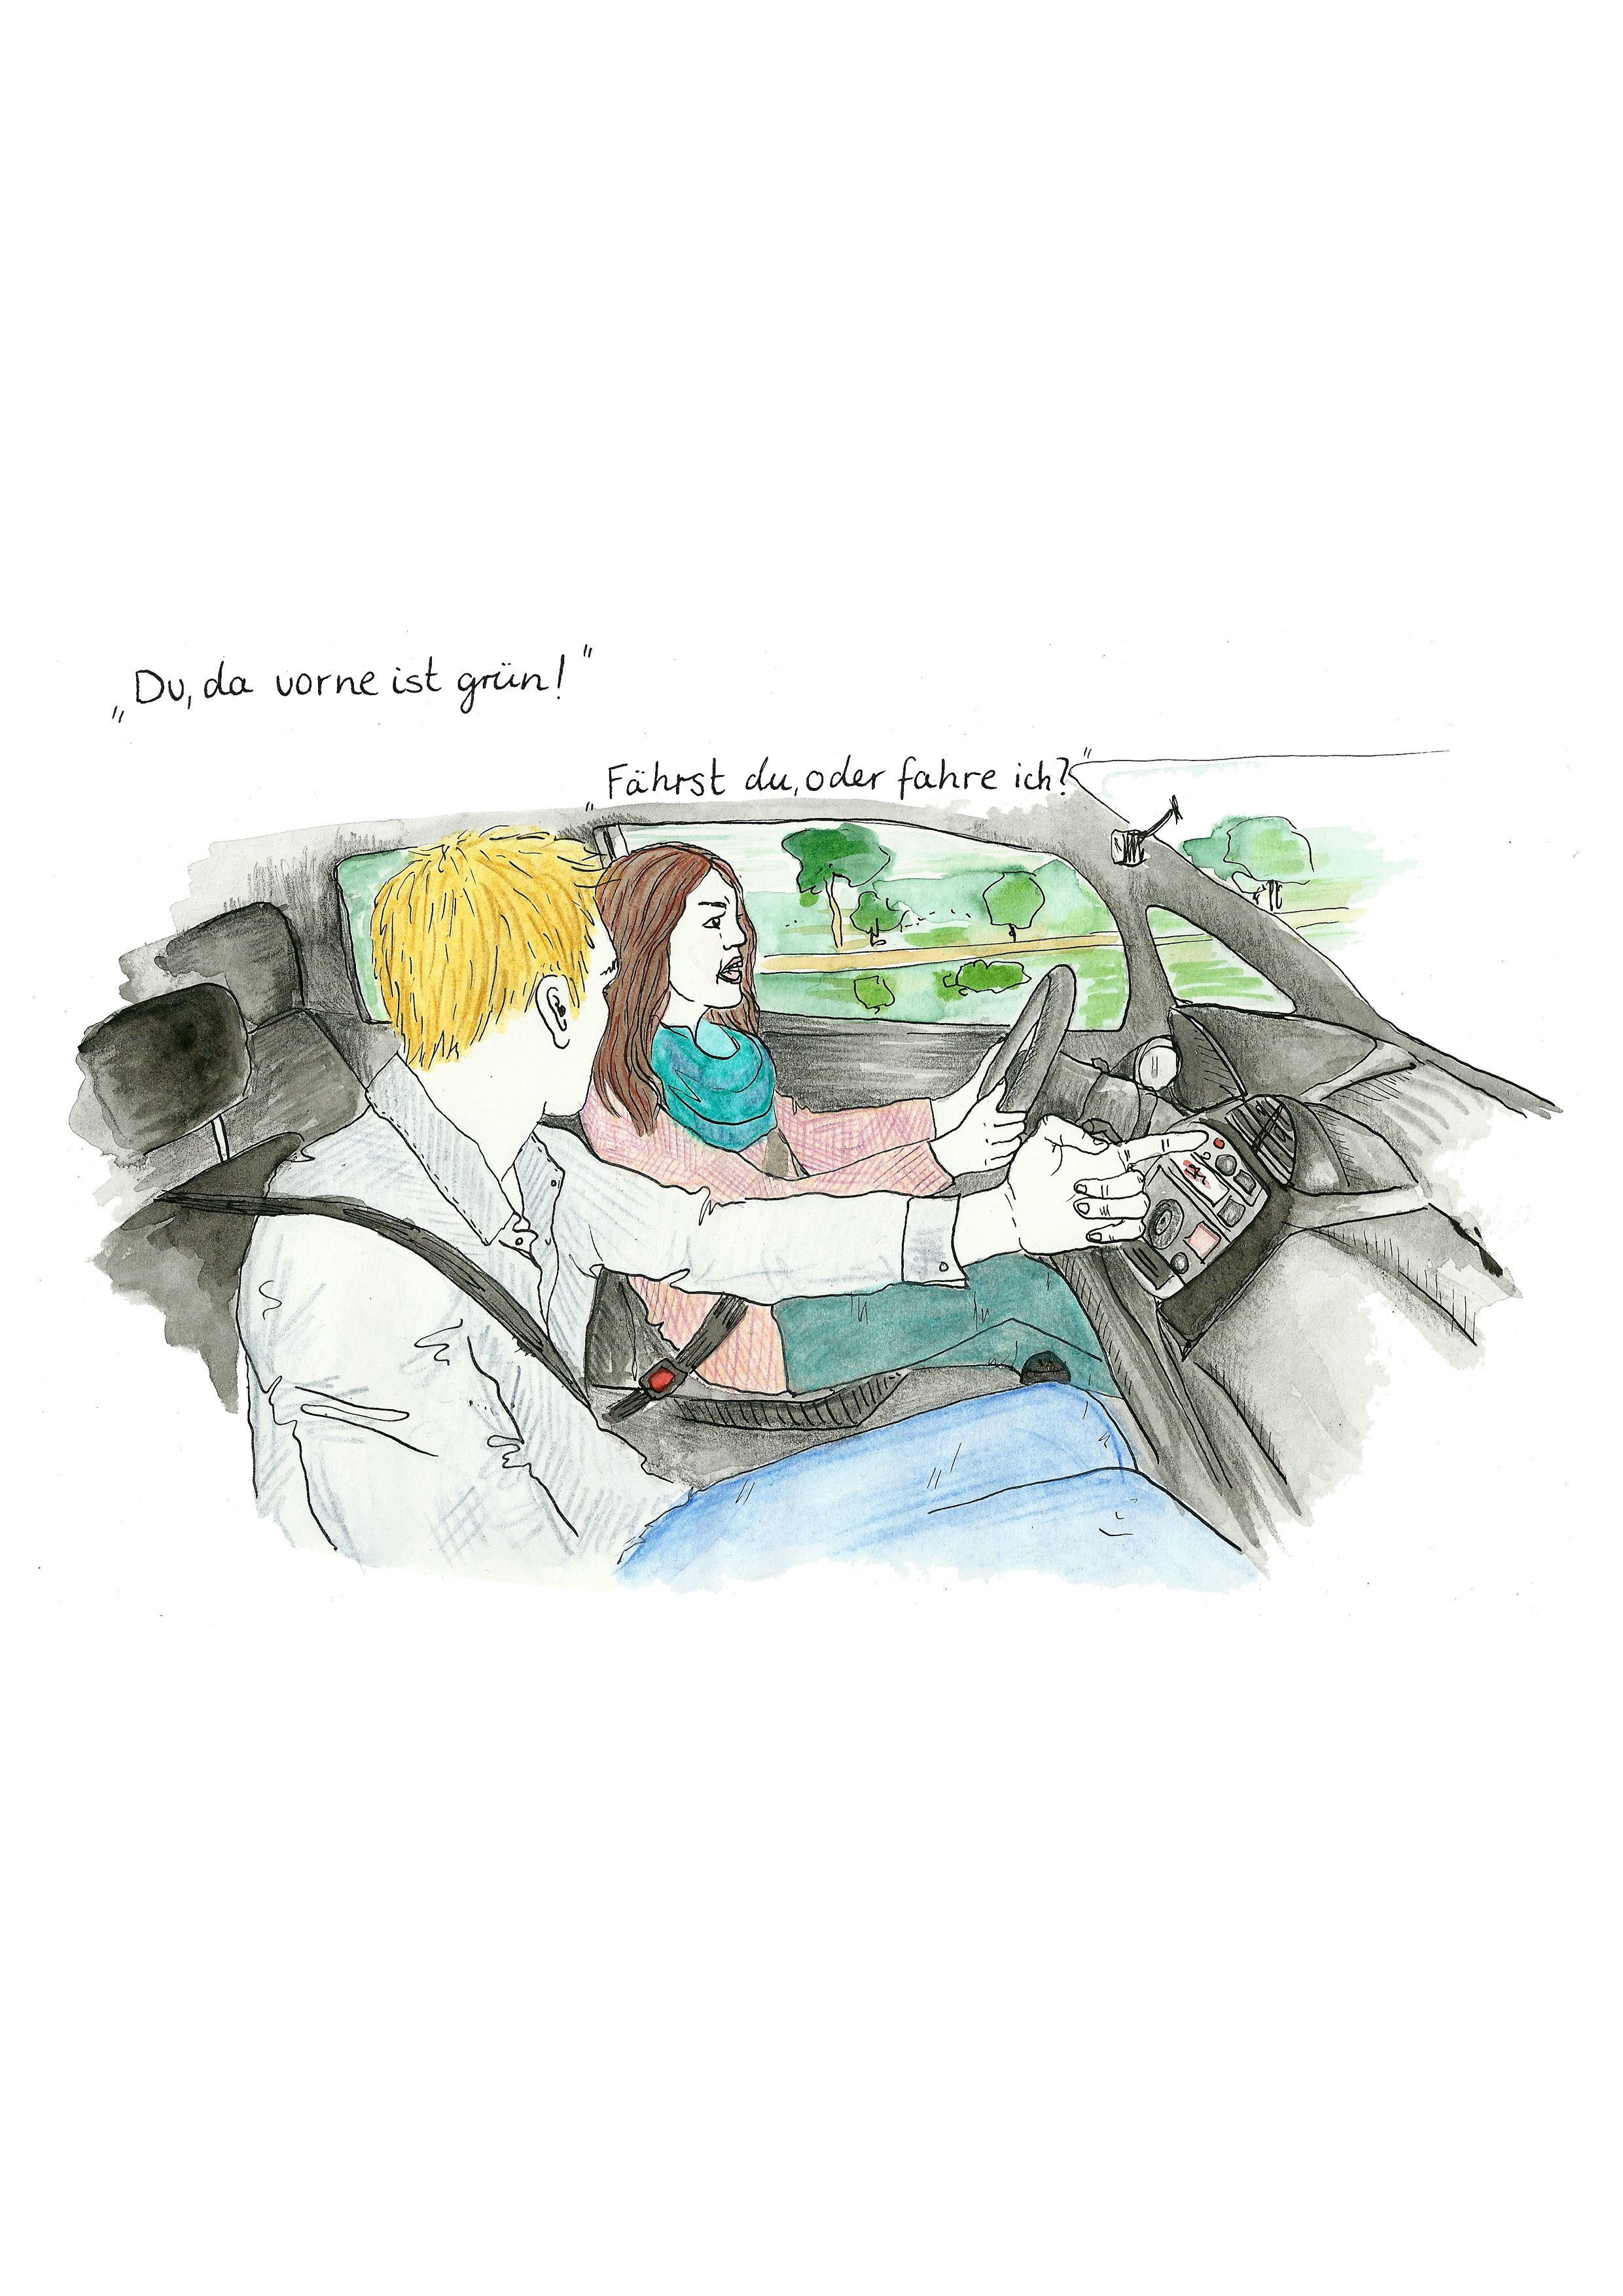 „Du, da vorne ist grün!"
„Fährst du, oder fahre ich?"